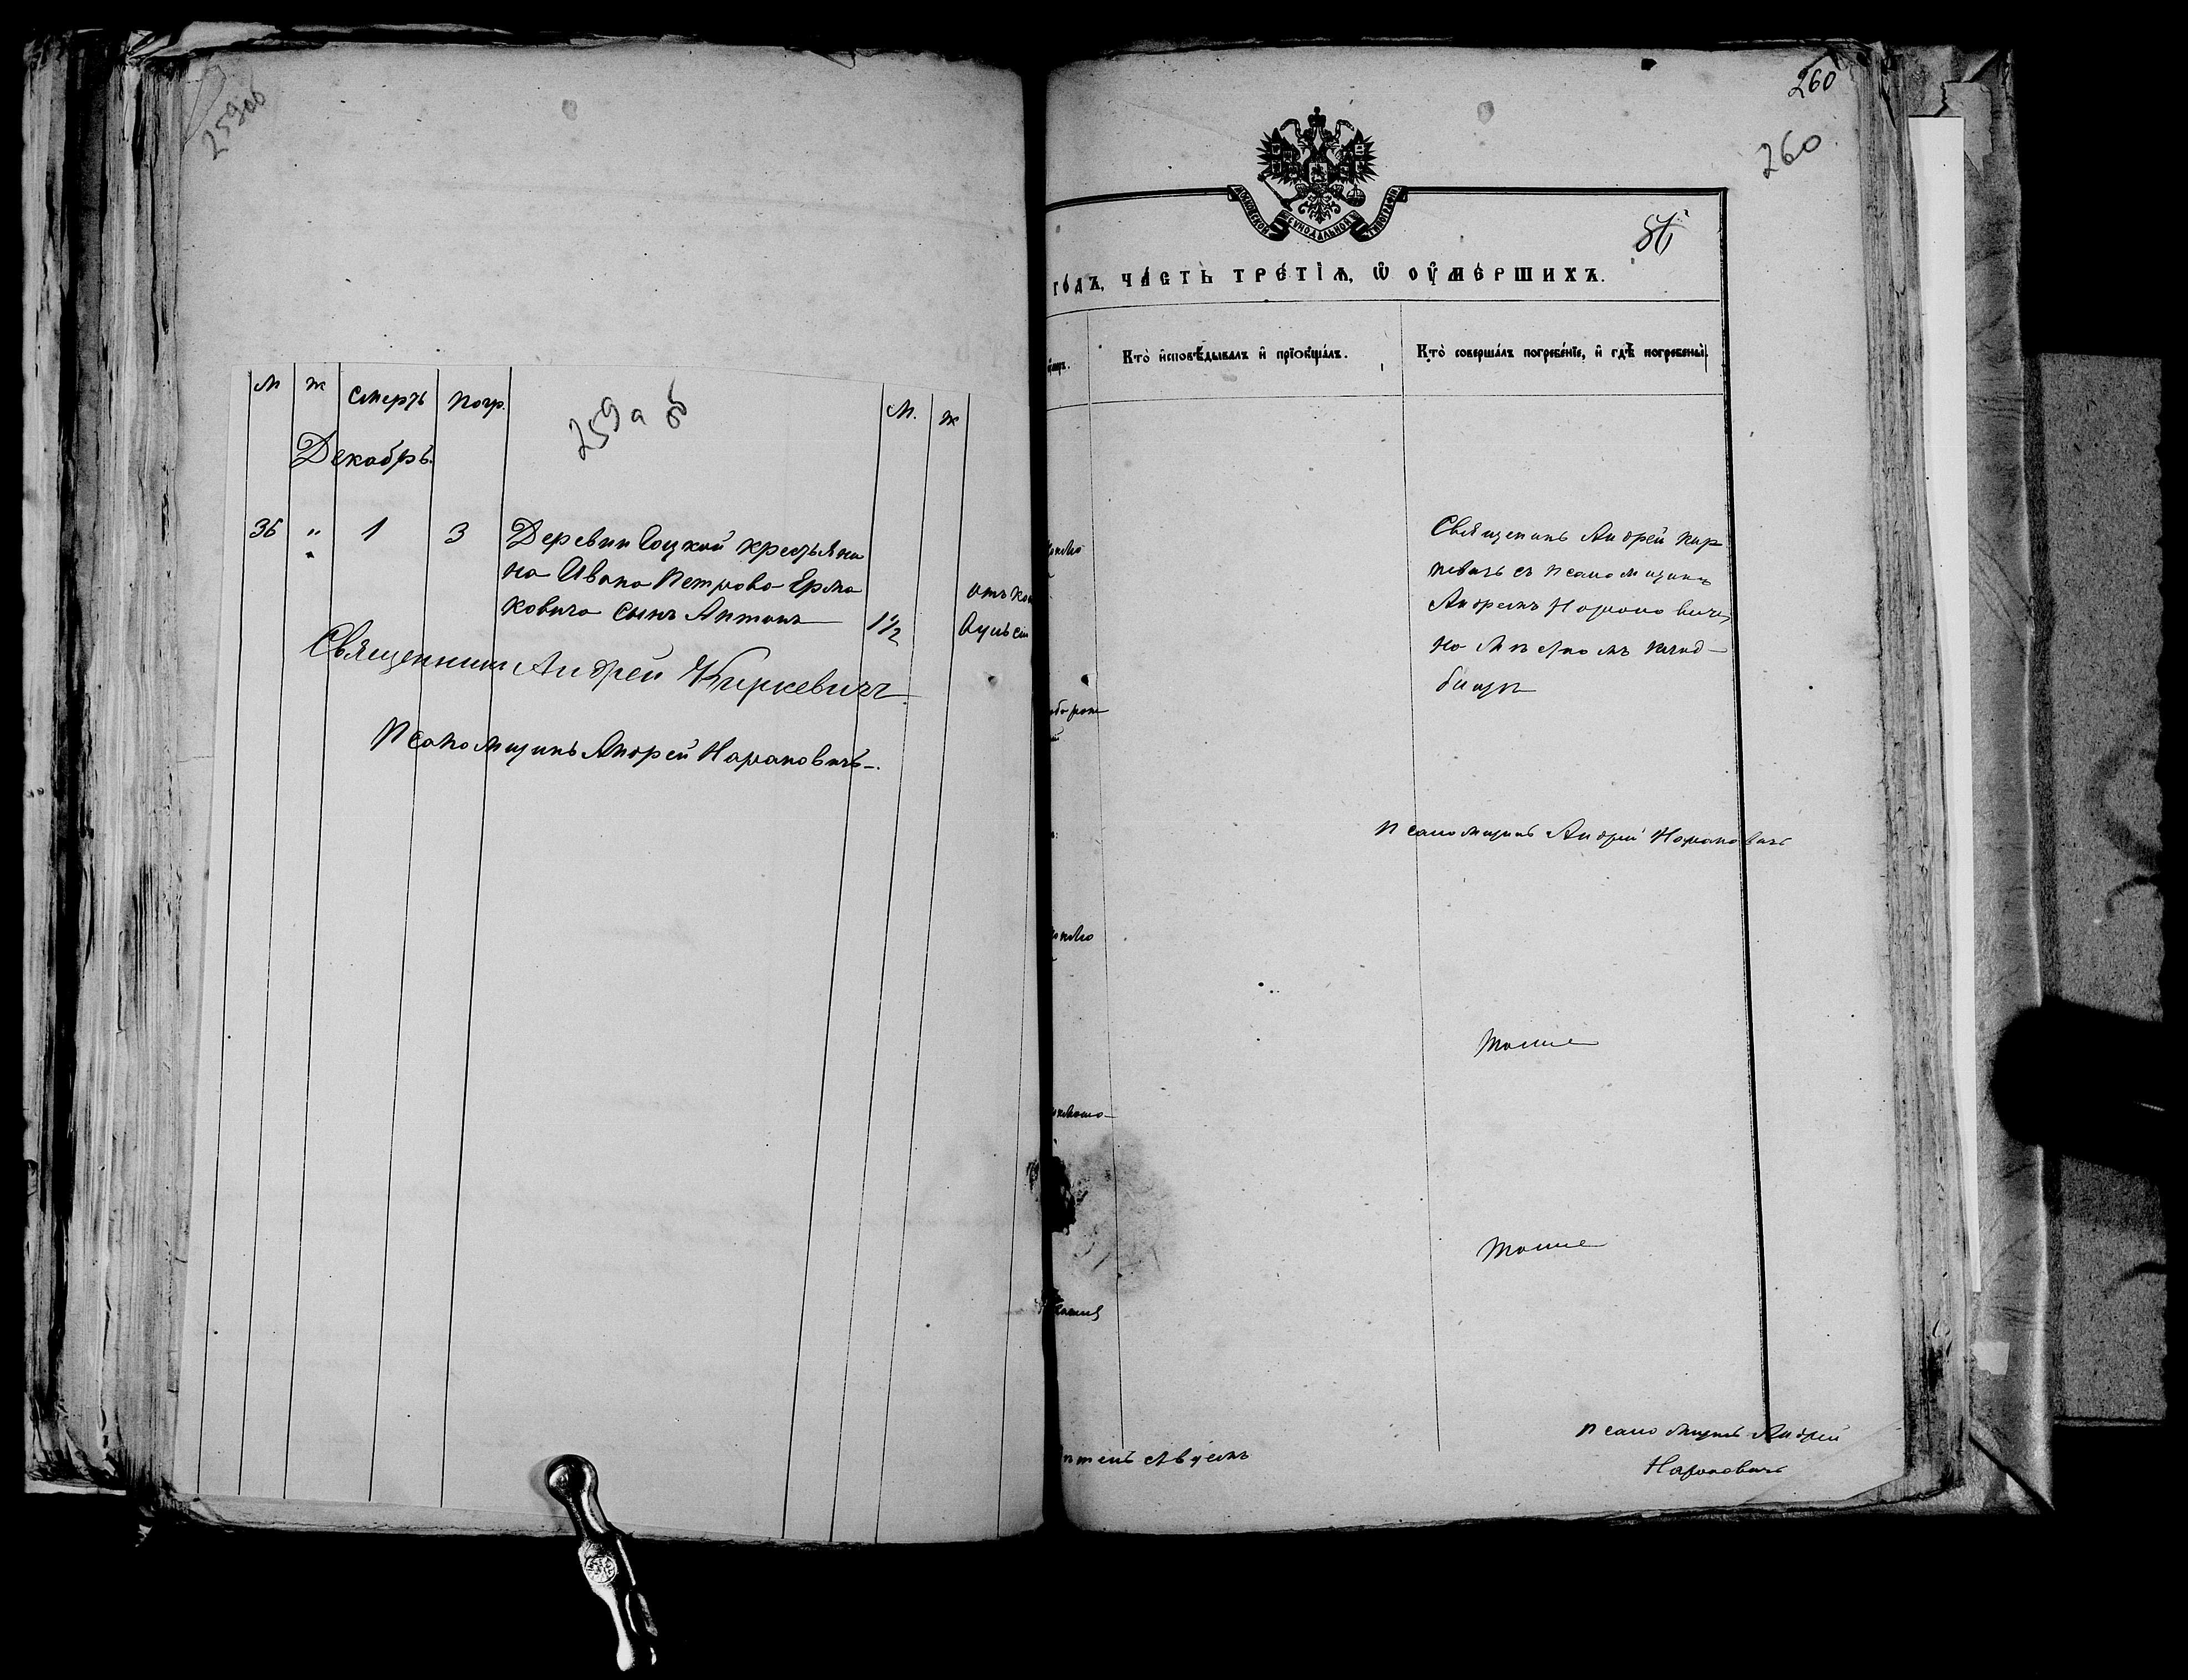 259об
М Ж Смерть Погр. М. Ж
259а об
Декабрь.
36 " 1 3 Деревни Соцкой крестьяни
на Ивана Петрова Ерма
ковича сынъ Антонъ 1½
отъ ко
Священникъ Андрей Киркевичъ
Псаломщикъ Андрей Наранович.
260
260
МОСКОВСКОЙ СѴНОДАЛЬНОЙ ТИПОГРАФІИ
го́дъ, ча́сть тре́тїѧ, ѡ҆ оу҆ме́ршихъ.
Кто̀ и҆сповѣ́дывалъ и҆ прїѻбща́лъ.
Кто̀ соверша́лъ погребе́нїе, и҆ гдѣ̀ погребены̀.
Священникъ Андрей Кир
кевичъ съ псаломщикомъ
Андреемъ Нарановичемъ
на мѣстномъ клад-
бищѣ
Псаломщикъ Андрей Нарановичъ
Тоже
Тоже
Псаломщикъ Андрей
Нарановичъ